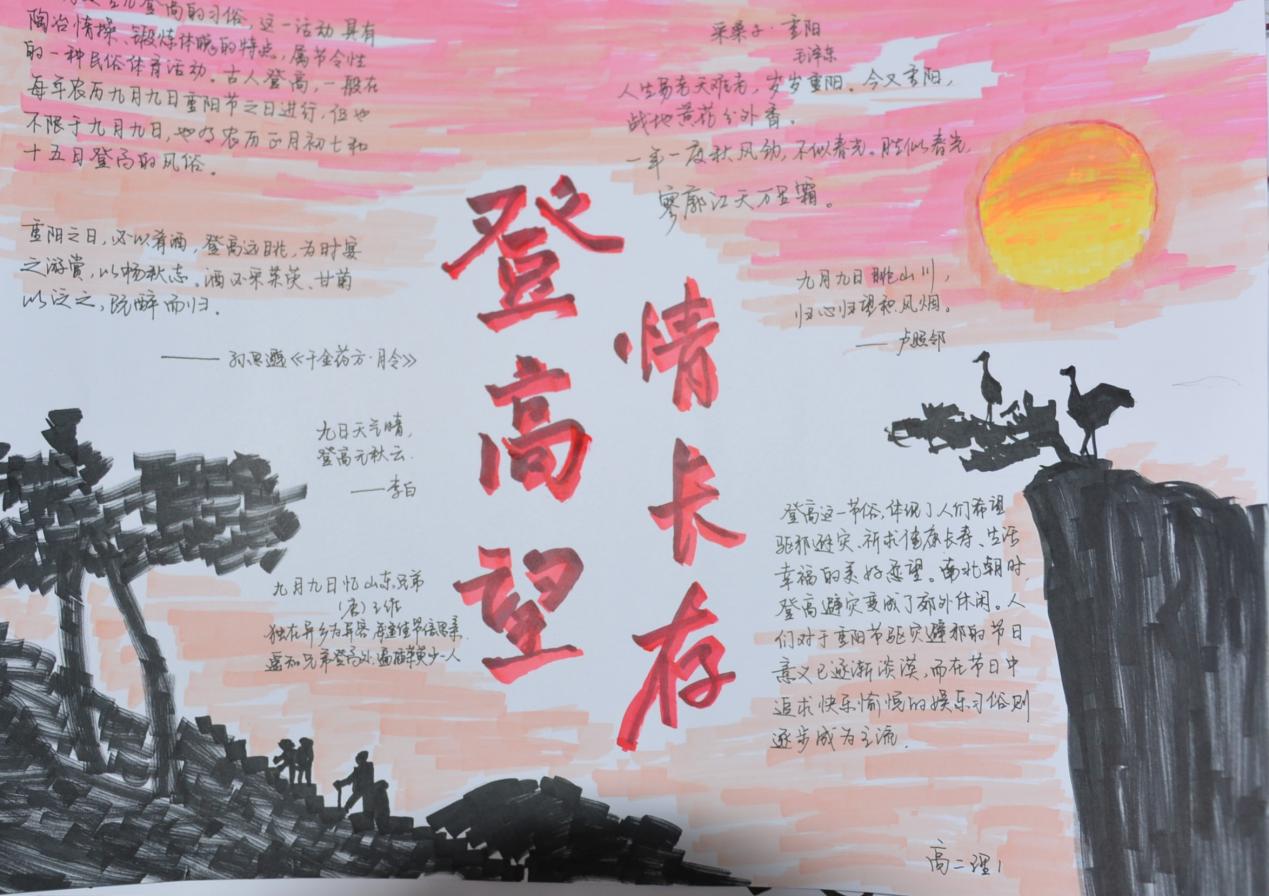 登高的习俗,这一活动具有
陶冶情操、锻炼体魄的特点,属节令性
的一种民俗体育活动。古人登高,一般在
每年农历九月九日重阳节之日进行,但也
不限于九月九日,也有农历正月初七和
十五日登高的风俗。
重阳之日,必以肴酒,登高远眺,为时宴
之游赏,以畅秋志。酒必采茱萸、甘菊
以泛之,既醉而归。
——孙思邈《千金药方·月令》
九日天气晴,
登高无秋云.
——李白
九月九日忆山东兄弟
(唐)王维
独在异乡为异客,每逢佳节倍思亲.
遥知兄弟登高处,遍插茱萸少一人
登高望
情长存
采桑子·重阳
毛泽东
人生易老天难老,岁岁重阳。今又重阳,
战地黄花分外香。
一年一度秋风劲,不似春光。胜似春光,
寥廓江天万里霜。
九月九日眺山川,
归心归望积风烟。
——卢照邻
登高这一节俗,体现了人们希望
驱邪避灾、祈求健康长寿、生活
幸福的美好愿望。南北朝时
登高避灾变成了郊外休闲。人
们对于重阳节驱灾避邪的节日
意义已逐渐淡漠,而在节日中
追求快乐愉悦的娱乐习俗则
逐步成为主流.
高二理1